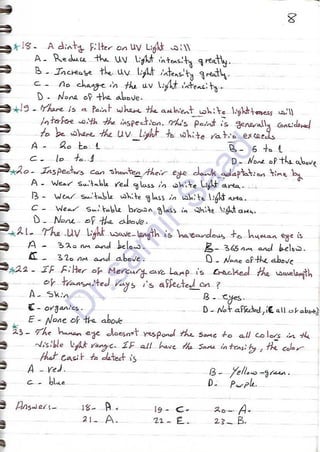 8
*18- A dirty Filter on UV Light will
A- Reduce the UV Light intensity greatly.
B- Increase the UV light intensity greatly.
C- no change in the UV light intensity.
D- None of the above.
*19- There is a Point where the ambient white light will
interfere with the inspection. This Point is generally considered
to be where the UV Light to white ratio exceeds
A- 20 to 1 B- 5 to 1
C- 10 to 1 D- None of the above
*20- Inspectors can shorten their eye dark adaptation time by
A- Wear Suitable red glass in white Light area.
B- Wear Suitable white glass in white light area.
C- Wear Suitable brown glass in white light area.
D- None of the above.
*21- The UV light wave-length is hazardous to human eye is
A- 320 nm and below. B- 365 nm and below.
C- 320 nm and above. D- None of the above
*22- If Filter of Mercury arc Lamp is Cracked the wavelength
of transmitted rays is affected on ?
A- Skin B- eyes.
C- organics. D- Not affected, (E all of above)
E- None of the above
23- The human eye doesn't respond the Same to all colors in the
visible light range. If all have the Same intensity, the color
that easist to detect is
A- red. B- Yellow-green.
C- blue D- Purple.
Answer:- 18- A. 19- C. 20- A.
21- A. 22- E. 23- B.